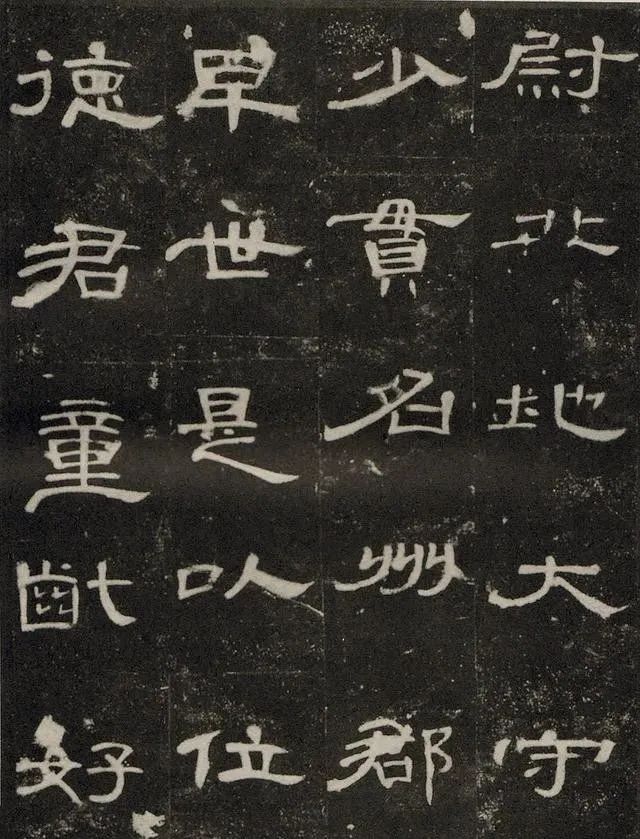 尉北地大守
少貫名州郡
早世是以位
德君童齔好